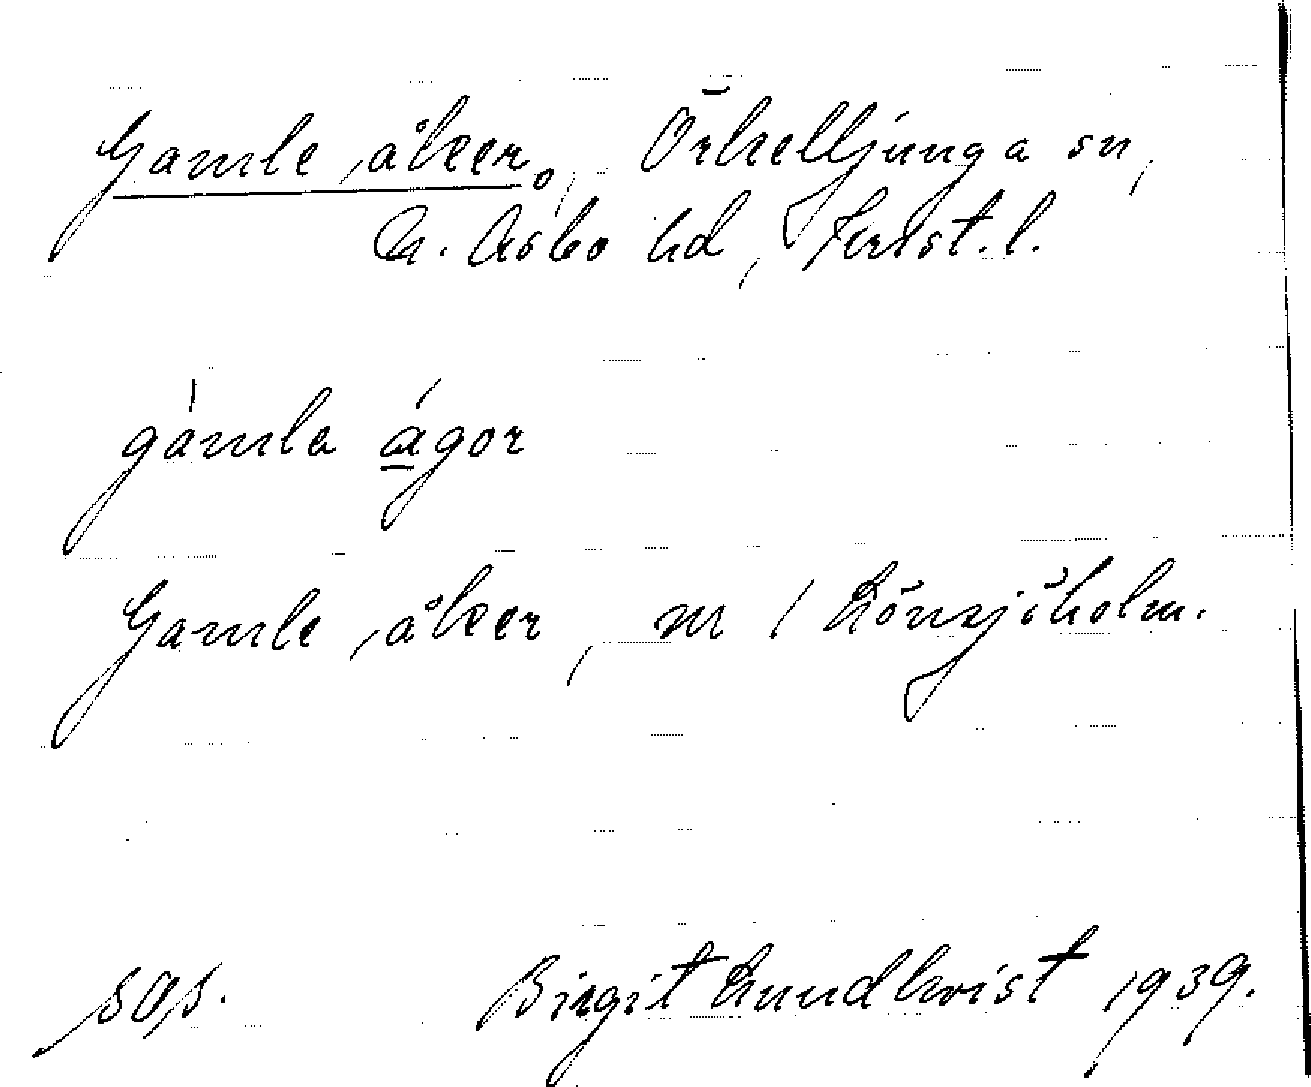 Gamle åker, Örkelljunga sn,
N. Åsbo hd, Krist. l.
gámla águr
Gamle åker, nr 1 Lönsjöholm.
sas. Birgit Lundkvist 1939.